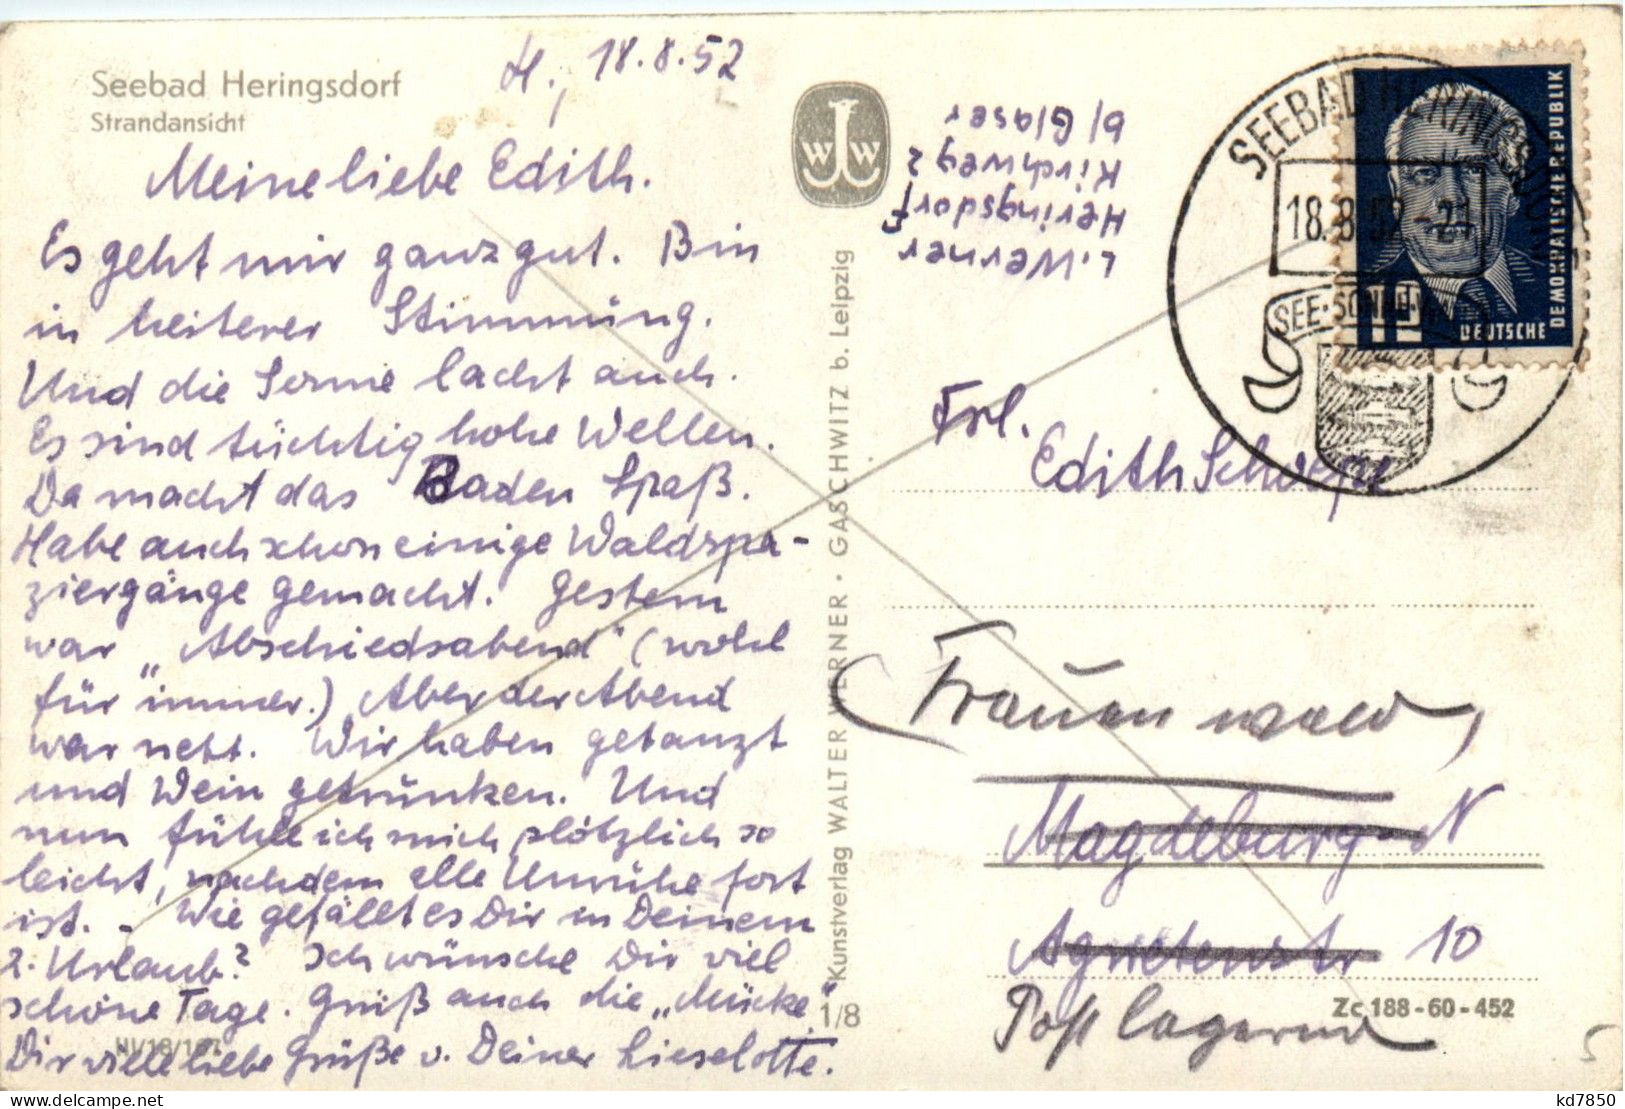 Seebad Heringsdorf
Strandansicht
H., 18.8.52
Meine liebe Edith.
Es geht mir ganz gut. Bin
in heiterer Stimmung.
Und die Sonne lacht auch.
Es sind tüchtig hohe Wellen.
Da macht das Baden Spaß.
Habe auch schon einige Waldspa-
ziergänge gemacht. Gestern
war „Abschiedsabend" (wohl
für immer.) Aber der Abend
war nett. Wir haben getanzt
und Wein getrunken. Und
nun fühle ich mich plötzlich so
leicht, nachdem alle Unruhe fort
ist. - Wie gefällt es Dir in Deinem
2. Urlaub? Ich wünsche Dir viel
schöne Tage. Grüß auch die „Mücke"
Dir viele liebe Grüße v. Deiner Lieselotte.
HI/18/187
W W
L. Werner
Heringsdorf
Kirchweg 2
b/ Glaser
Kunstverlag WALTER WERNER · GASCHWITZ b. Leipzig
1/8
SEEBAD HERINGSDORF
18.8.52-21
SEE·SONNE·
12
DEUTSCHE
DEMOKRATISCHE REPUBLIK
Frl.
Edith
(Frauenwald,
Magdeburg-N
Agnetenstr 10
Postlagernd
Zc 188-60-452
5
kd7850
delcampe.net